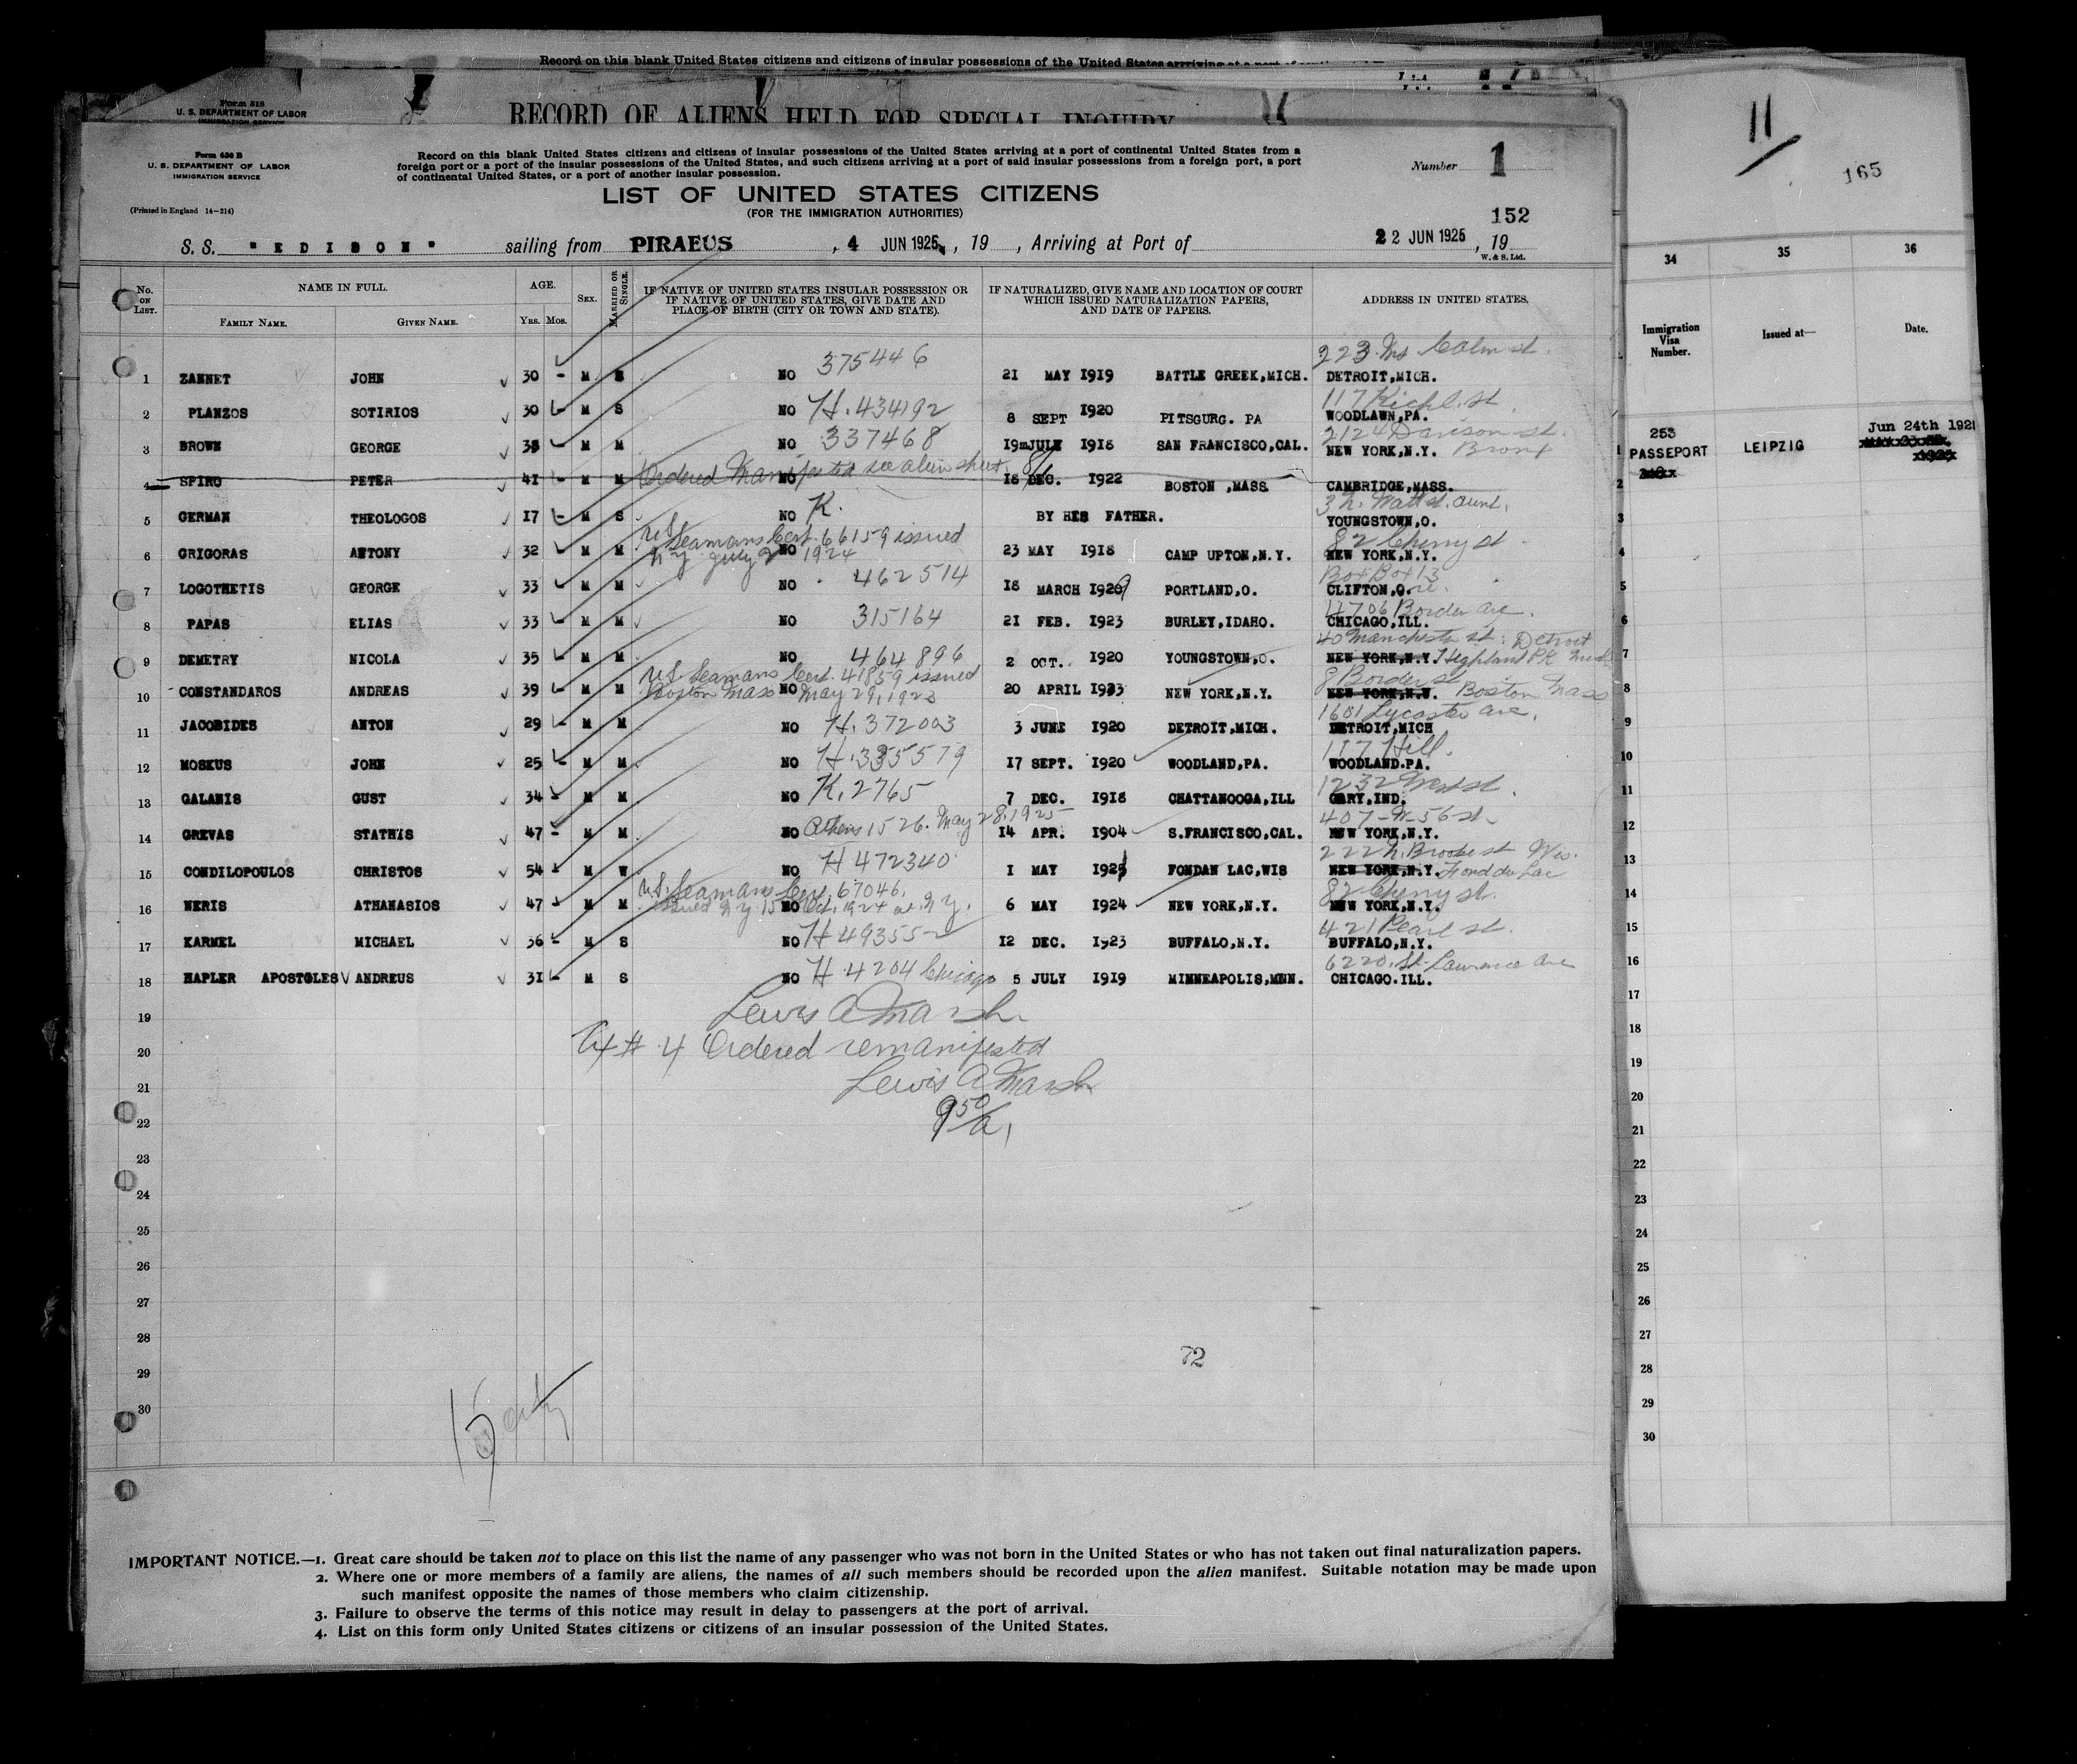 Record on this blank United States citizens and citizens of insular possessions of the United States arriving at a port of
Form 518
U. S. DEPARTMENT OF LABOR
IMMIGRATION SERVICE
RECORD OF ALIENS HELD FOR SPECIAL INQUIRY
11
165
Form 630 B
U. S. DEPARTMENT OF LABOR
IMMIGRATION SERVICE
(Printed in England 14—214)
Record on this blank United States citizens and citizens of insular possessions of the United States arriving at a port of continental United States from a
foreign port or a port of the insular possessions of the United States, and such citizens arriving at a port of said insular possessions from a foreign port, a port
of continental United States, or a port of another insular possession.
Number 1
LIST OF UNITED STATES CITIZENS
(FOR THE IMMIGRATION AUTHORITIES)
152
S. S. "EDISON" sailing from PIRAEUS, 4 JUN 1925, 19 , Arriving at Port of 22 JUN 1925, 19
W. & S. Ltd.
No. ON LIST.
NAME IN FULL.
FAMILY NAME. GIVEN NAME.
AGE.
YRS. MOS.
SEX.
MARRIED OR SINGLE.
IF NATIVE OF UNITED STATES INSULAR POSSESSION OR
IF NATIVE OF UNITED STATES, GIVE DATE AND
PLACE OF BIRTH (CITY OR TOWN AND STATE).
IF NATURALIZED, GIVE NAME AND LOCATION OF COURT
WHICH ISSUED NATURALIZATION PAPERS,
AND DATE OF PAPERS.
ADDRESS IN UNITED STATES.
375446
1 ZANNET JOHN 30 - M S NO 21 MAY 1919 BATTLE GREEK,MICH. DETROIT,MICH.
2 PLANZOS SOTIRIOS 30 - M S NO H.434192 8 SEPT 1920 PITSGURG. PA WOODLAWN,PA.
2124 Davison st.
3 BROWN GEORGE 35 - M M NO 337468 19mJULE 1918 SAN FRANCISCO,CAL. NEW YORK,N.Y. Bronx
Ordered Manifested see alien sheet 8/1
4 SPIRO PETER 41 - M M NO 18 DEC. 1922 BOSTON ,MASS CAMBRIDGE,MASS.
5 GERMAN THEOLOGOS 17 - M S NO K. BY HES FATHER. YOUNGSTOWN,O.
US Seamans Cert. 66159 issued
N.Y. July 2 1924
82 Cherry st.
6 GRIGORAS ANTONY 32 - M M NO 23 MAY 1918 CAMP UPTON,N.Y. NEW YORK,N.Y.
Box Box 13
7 LOGOTHETIS GEORGE 33 - M M NO 462514 18 MARCH 1920 PORTLAND,O. CLIFTON,O.
11706 Border ave.
8 PAPAS ELIAS 33 - M M NO 315164 21 FEB. 1923 BURLEY,IDAHO. CHICAGO,ILL.
40 Manchester st. Detroit
9 DEMETRY NICOLA 35 - M M NO 464896 2 OCT. 1920 YOUNGSTOWN,O. NEW YORK,N.Y. Highland PK Mich
US. Seamans Cert. 41859 issued
Boston Mass May 29, 1923
8 Border st
10 CONSTANDAROS ANDREAS 39 - M M NO 20 APRIL 1923 NEW YORK,N.Y. NEW YORK,N.Y. Boston Mass
1601 Lycaste ave.
11 JACOBIDES ANTON 29 - M M NO H.372003 3 JUNE 1920 DETROIT,MICH. DETROIT,MICH
117 Hill.
12 MOSKUS JOHN 25 - M M NO H.335579 17 SEPT. 1920 WOODLAND,PA. WOODLAND.PA.
1232 West st.
13 GALANIS GUST 34 - M M NO K.2765 7 DEC. 1918 CHATTANOOGA,ILL GARY,IND.
407-W-56-st.
14 GREVAS STATHIS 47 - M M NO Athens 1526. May 28, 1925 14 APR. 1904 S.FRANCISCO,CAL. NEW YORK,N.Y.
222 N. Brooke st Wis.
15 CONDILOPOULOS CHRISTOS 54 - M W NO H 472340 1 MAY 1925 FONDAN LAC,WIS NEW YORK,N.Y. Fond du Lac
U.S. Seamans Cert. 67046.
issued N Y 15 Oct. 1924 at N.Y.
82 Cherry st.
16 NERIS ATHANASIOS 47 - M M NO 6 MAY 1924 NEW YORK,N.Y. NEW YORK,N.Y.
421 Pearl st.
17 KARMEL MICHAEL 36 - M S NO H 493552 12 DEC. 1923 BUFFALO,N.Y. BUFFALO,N.Y.
6220. St. Lawrence Ave
18 HAPLER APOSTOLES ANDREUS 31 - M S NO H 4204 Chicago 5 JULY 1919 MINNEAPOLIS,MNN. CHICAGO.ILL.
19 Lewis A Marsh
20 # 4 Ordered remanifested
21 Lewis A Marsh
22 9 50/a,
23
24
25
26
27
28
72
29
30
34 35 36
Immigration Visa Number. Issued at— Date.
253
1 PASSEPORT LEIPZIG Jun 24th 192
2
3
4
5
6
7
8
9
10
11
12
13
14
15
16
17
18
19
20
21
22
23
24
25
26
27
28
29
30
IMPORTANT NOTICE.—1. Great care should be taken not to place on this list the name of any passenger who was not born in the United States or who has not taken out final naturalization papers.
2. Where one or more members of a family are aliens, the names of all such members should be recorded upon the alien manifest. Suitable notation may be made upon
such manifest opposite the names of those members who claim citizenship.
3. Failure to observe the terms of this notice may result in delay to passengers at the port of arrival.
4. List on this form only United States citizens or citizens of an insular possession of the United States.